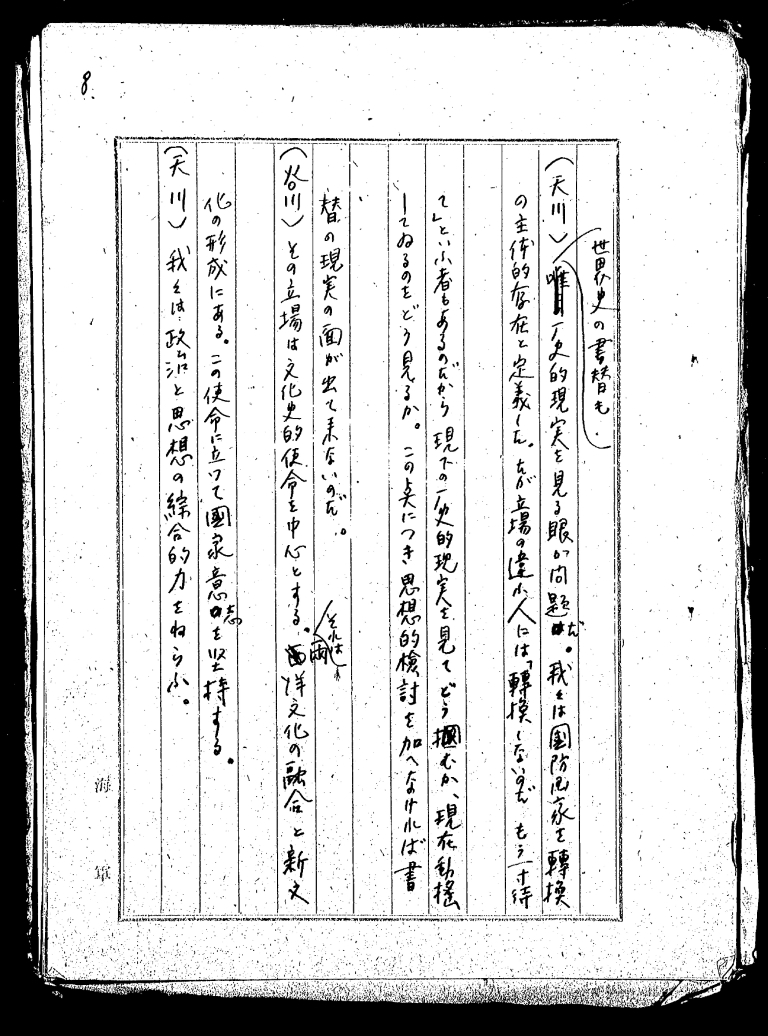 8.
世界史の書替も、
(天川) 唯厂史的現実を見る眼が問題だ。我々は國防国家を轉換
の主体的存在と定義した。だが立場の違ふ人には「轉換しないのだ もう一寸待
て」といふ者もあるのだから 現下の厂史的現実を見て どう摑むか、現在動揺
してゐるのをどう見るか。この点につき思想的検討を加へなければ書
替の現実の面が出て来ないのだ。
それは
(谷川) その立場は文化史的使命を中心とする。両洋文化の融合と新文
化の形成にある。この使命に立つて國家意志を堅持する。
(天川) 我々は政治と思想の綜合的力をねらふ。
海軍